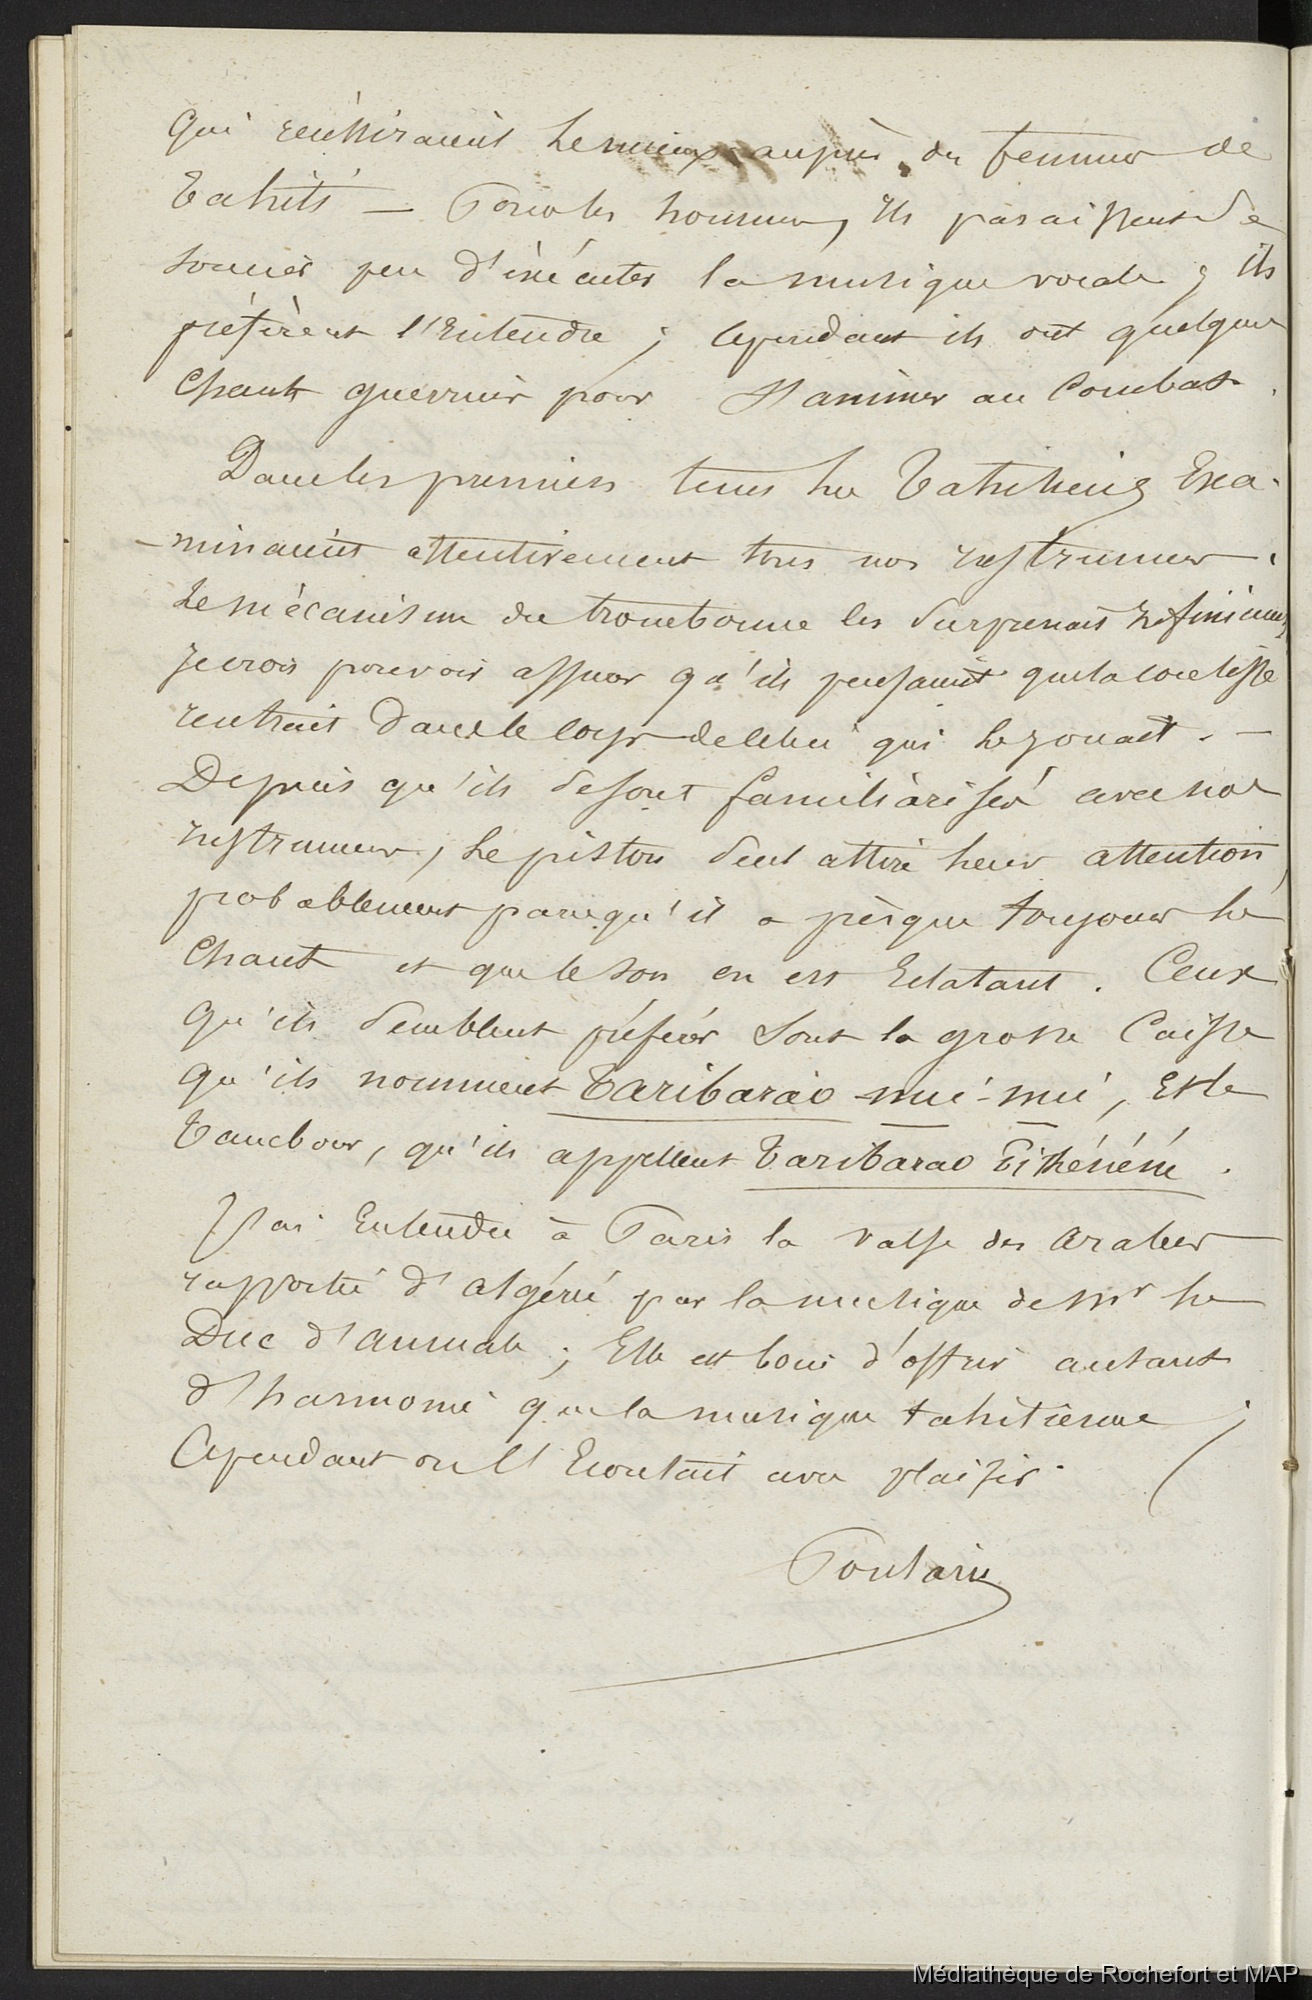 qui réussiraient le mieux auprès des femmes de
Tahiti — Pour les hommes, ils paraissent se
soucier peu d'exécuter la musique vocale ; ils
préfèrent l'entendre ; cependant ils ont quelques
chants guerriers pour s'animer au combat.
Dans les premiers tems les Tahitiens exa-
-minaient attentivement tous nos instrumens.
Le mécanisme du trombonne les surprenait infiniment,
je crois pouvoir assurer qu'ils pensaient que la coulisse
rentrait dans le corps de celui qui le jouait. —
Depuis qu'ils se sont familiàrisés avec nos
instrumens, le piston seul attire leur attention,
probablement parcequ'il a prèsque toujours le
chant et que le son en est éclatant. Ceux
qu'ils semblent préférer sont la grosse caisse
qu'ils nomment Taribarao-nui-nui, et le
Tambour, qu'ils appellent Taribarao Fithénéné.
J'ai entendu à Paris la valse des arabes
rapportée d'algérie par la musique de Mr le
Duc d'aumale ; Elle est loin d'offrir autant
d'harmonie que la musique tahitienne ;
Cependant on l'écoutait avec plaisir.
Poulain
Médiathèque de Rochefort et MAP